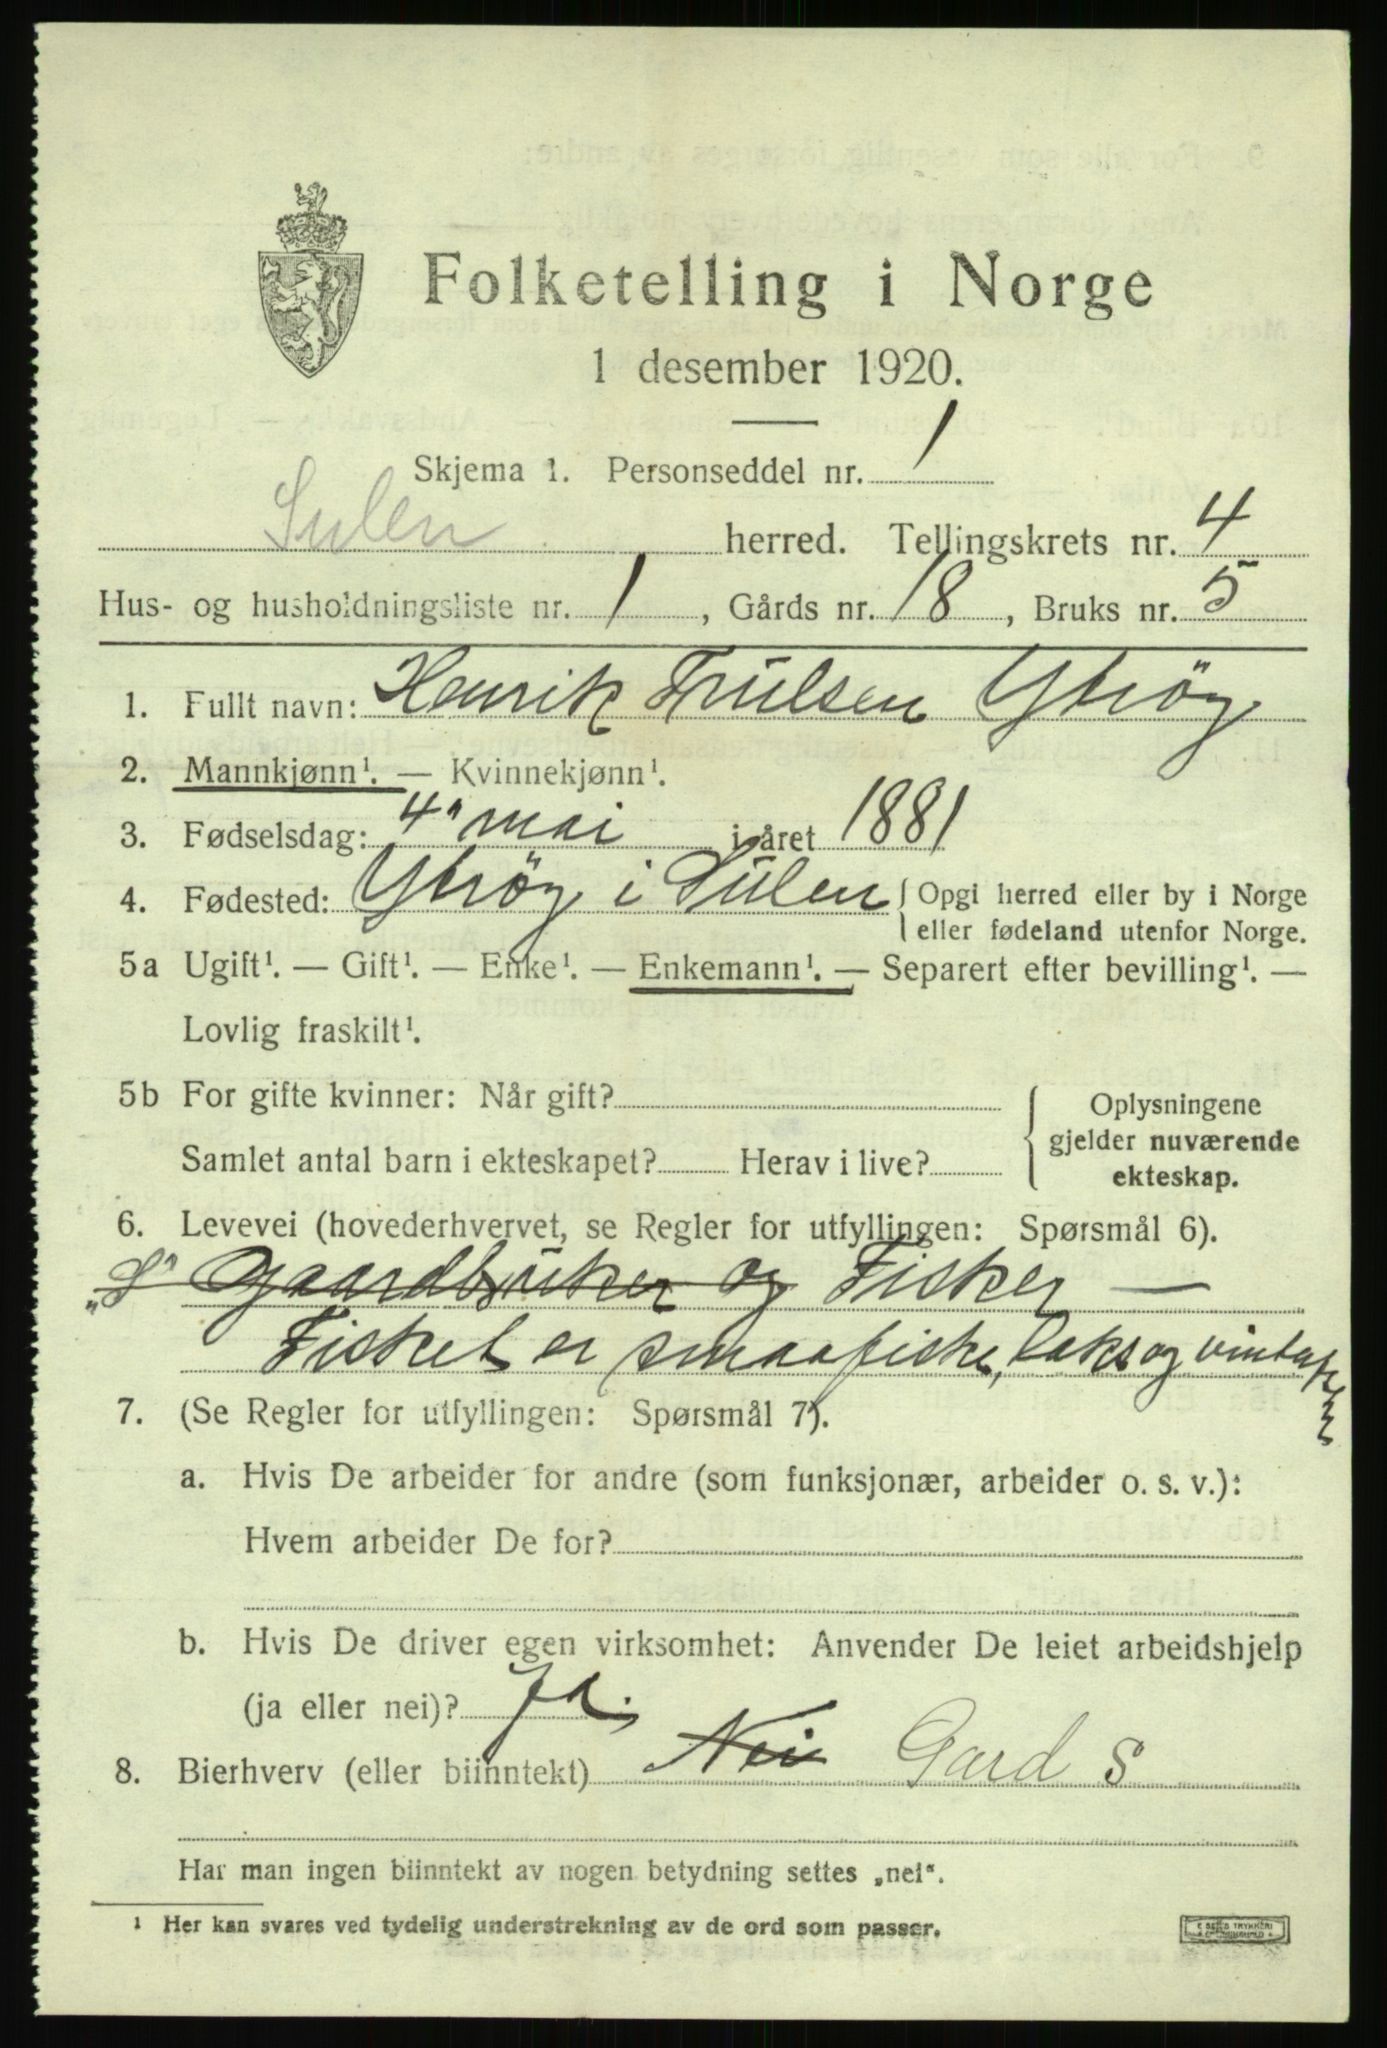 Folketelling i Norge
1 desember 1920.
Skjema 1. Personseddel nr. 1
Sulen herred. Tellingskrets nr. 4
Hus- og husholdningsliste nr. 1, Gårds nr. 18, Bruks nr. 5
1. Fullt navn: Henrik Trulsen Ytrøy
2. Mannkjønn¹. — Kvinnekjønn¹.
3. Fødselsdag: 4" mai i året 1881
4. Fødested: Ytrøy i Sulen { Opgi herred eller by i Norge
eller fødeland utenfor Norge.
5a Ugift¹. — Gift¹. — Enke¹. — Enkemann¹. — Separert efter bevilling¹. —
Lovlig fraskilt¹.
5b For gifte kvinner: Når gift?
Samlet antal barn i ekteskapet? Herav i live?
Oplysningene
gjelder nuværende
ekteskap.
6. Levevei (hovederhvervet, se Regler for utfyllingen: Spørsmål 6).
"S" Gaardbruker og Fisker —
Fisket er smaafiske, laks og
7. (Se Regler for utfyllingen: Spørsmål 7).
a. Hvis De arbeider for andre (som funksjonær, arbeider o. s. v.):
Hvem arbeider De for?
b. Hvis De driver egen virksomhet: Anvender De leiet arbeidshjelp
(ja eller nei)? Ja.
8. Bierhverv (eller biinntekt) Nei Gard S
Har man ingen biinntekt av nogen betydning settes „nei“.
¹ Her kan svares ved tydelig understrekning av de ord som passer.